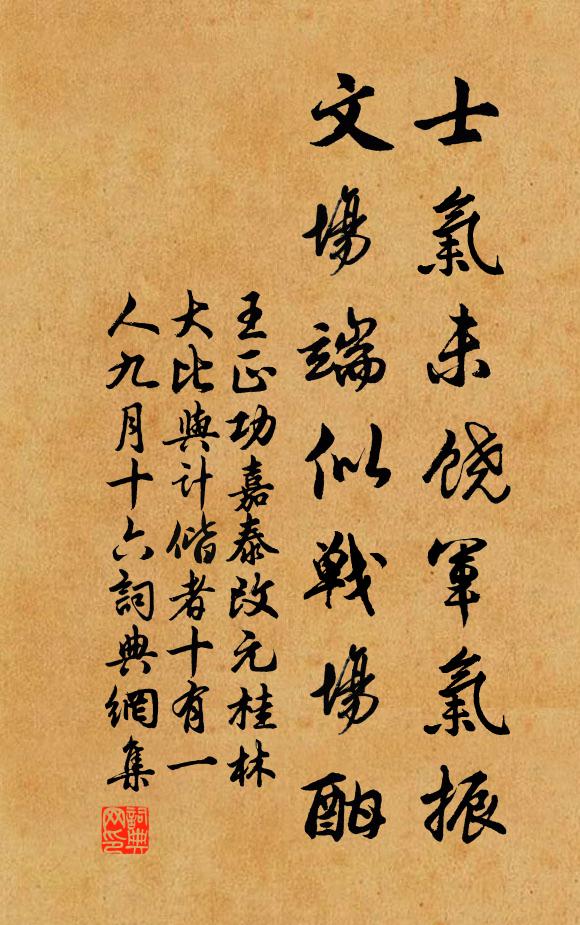 士氣未饒軍氣振
文場端似戰場酣
王正功嘉泰改元桂林
大比與計偕者十有一
人九月十六詞典網集
詞典網印